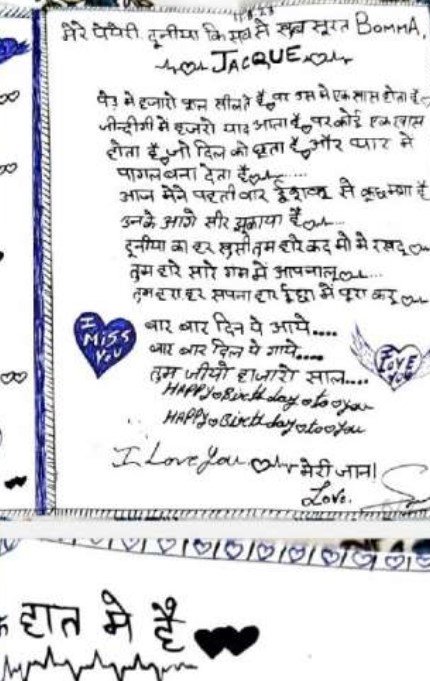 11.8.23
मेरे पेपेरी दुनीया कि सब से खुब सूरत BOMMA,
JACQUE
पेड़ मे हजारो फुल खीलते है, पर उस मे एक खास होता है
जीन्दीगी मे हजरो याद आता है, पर कोई एक खास
होता है, जो दिल को छुता है, और प्यार मे
पागल बना देता है
आज मेने पहली बार से कुछ मंगा है
उनके आगे सीर झुकाया है
दूनीया का हर खुसी तुम हारे कद मो मे रखदु
तुम हारे सारे गम में आपनालु
तुम हारा हर सपना हर में पूरा करु
I MISS YOU
बार बार दिन ये आये....
बार बार दिल ये गाये....
तुम जीयो हाजारो साल....
HAPPY Birthday to you
HAPPY Birthday to you
I LOVE YOU
I Love You मेरी जान।
Love.
हात मे है